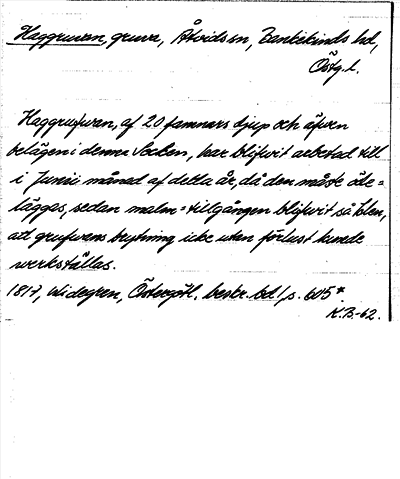 Haggruvan, gruva, Åtvids sn, Bankekinds hd,
Östg. l.
Haggrufwan, af 20 famnars djup och äfven
belägen i denna Socken, har blifwit arbetad till
i Junii månad af detta år, då den måste öde=
läggas, sedan malm=tillgången blifwit så klen,
att grufwans brytning icke utan förlust kunde
werkställas.
1817, Widegren, Östergötl. beskr. bd 1, s. 605*.
K.B.-62.